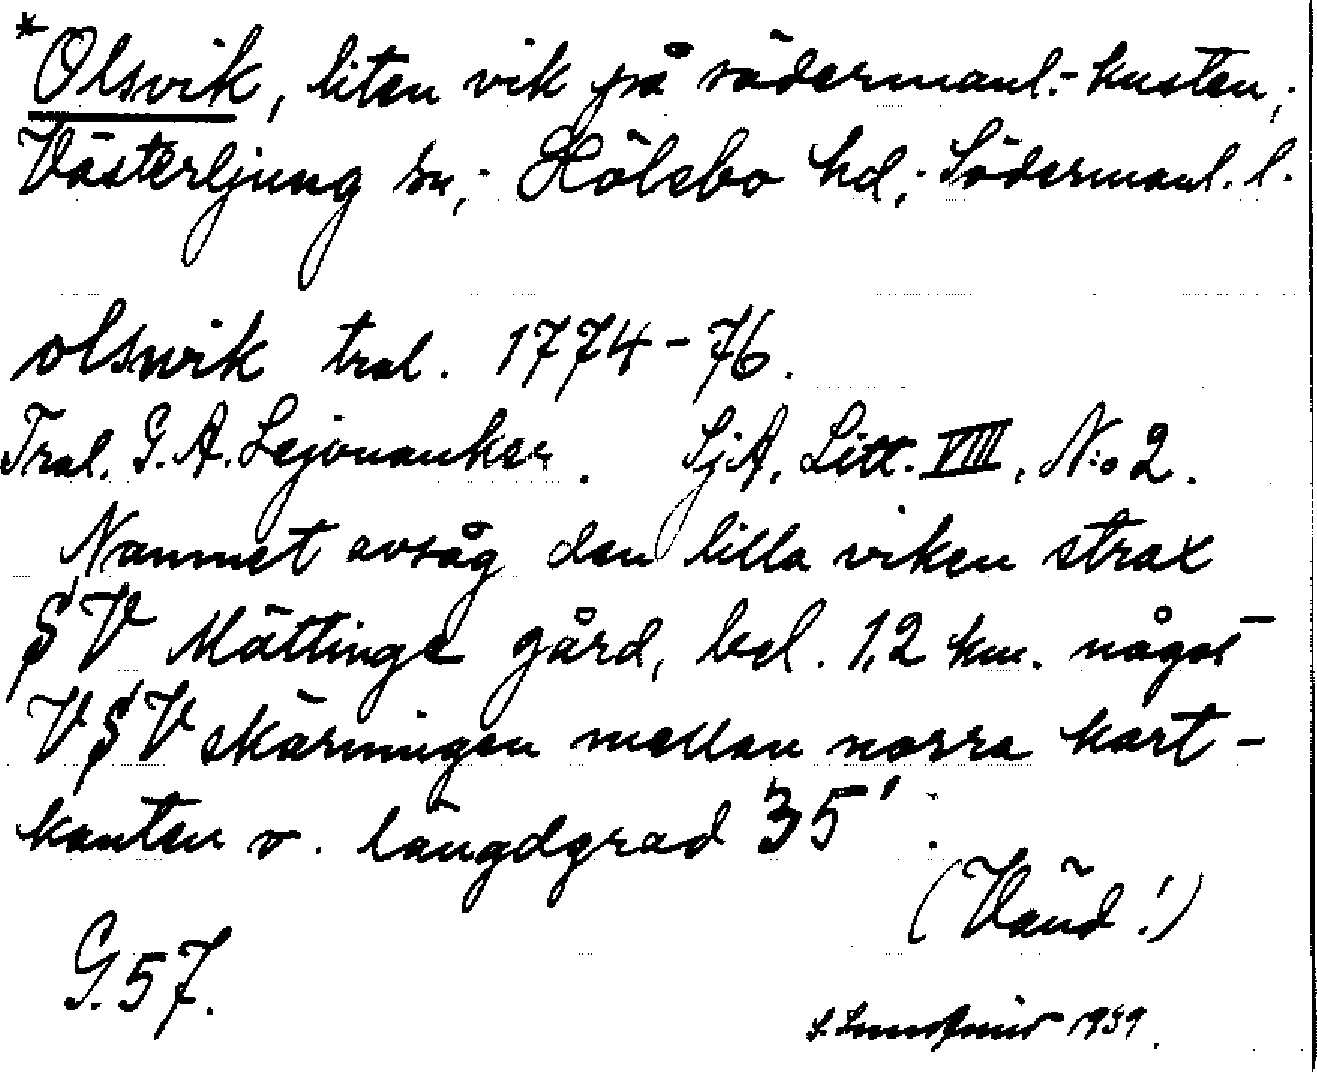 *Olsvik, liten vik på södermanl.-kusten;
Västerljung sn; Hölebo hd; Södermanl. l.
olswik tral. 1774-76.
Tral. G. A. Lejonanker. SjA. Litt. VIII, N:o 2.
Namnet avsåg den lilla viken strax
SV Mättinge gård, bel. 1,2 km. något
VSV skärningen mellan norra kart-
kanten o. längdgrad 35'.
(Vänd!)
G. 57.
1939.